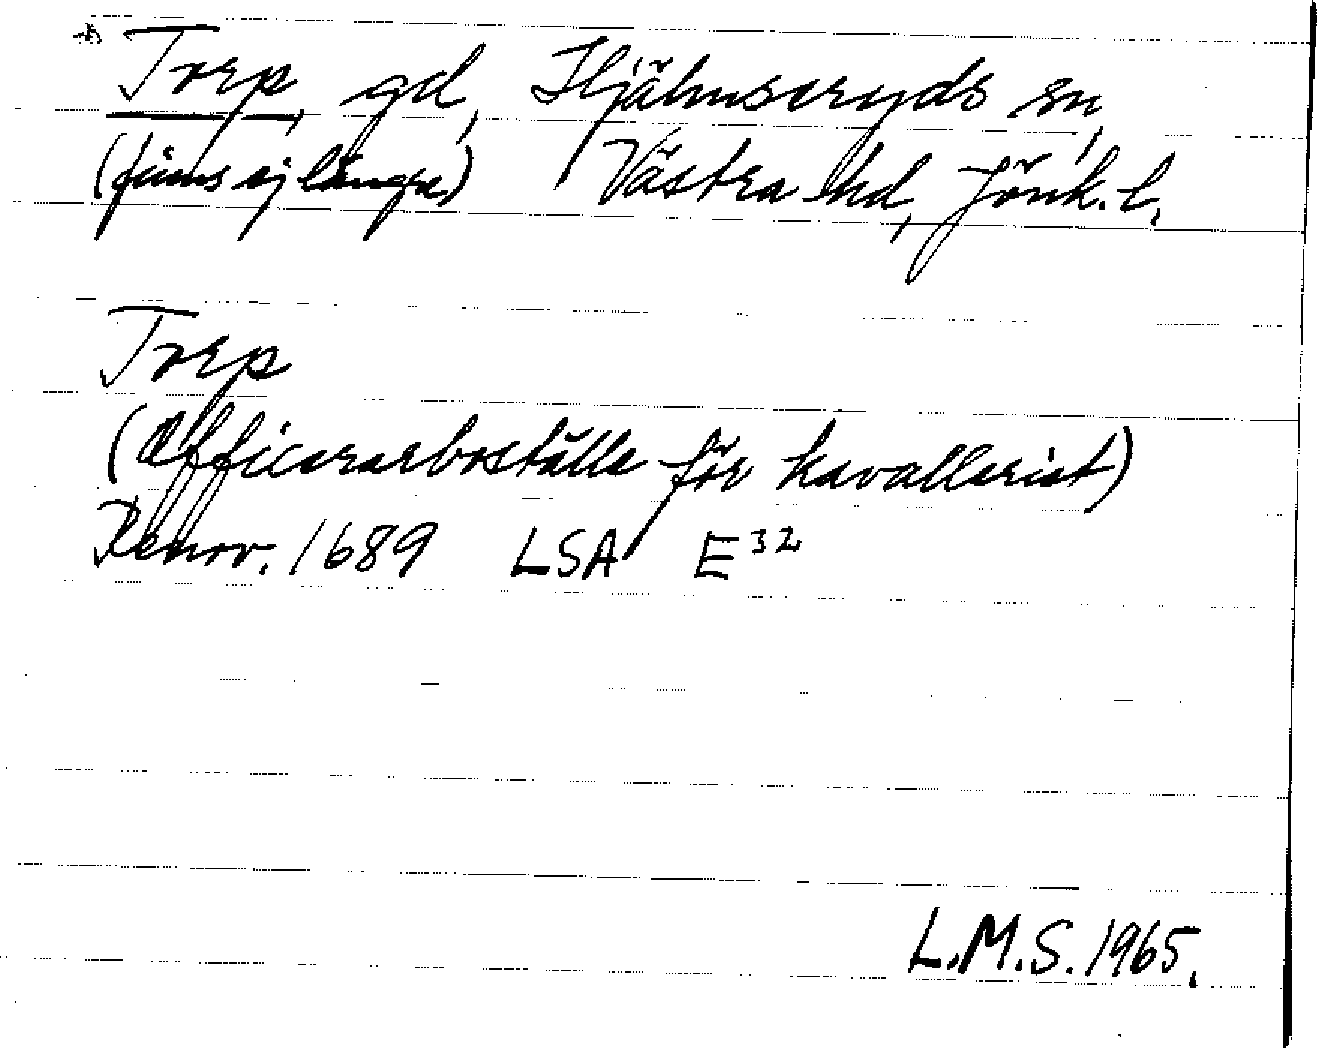 Torp, gd, Hjälmseryds sn,
(finns ej längre) Västra hd, Jönk. l.
Torp
(Officersboställe för kavalleriet)
Renov. 1689 LSA E 32
L.M.S. 1965.